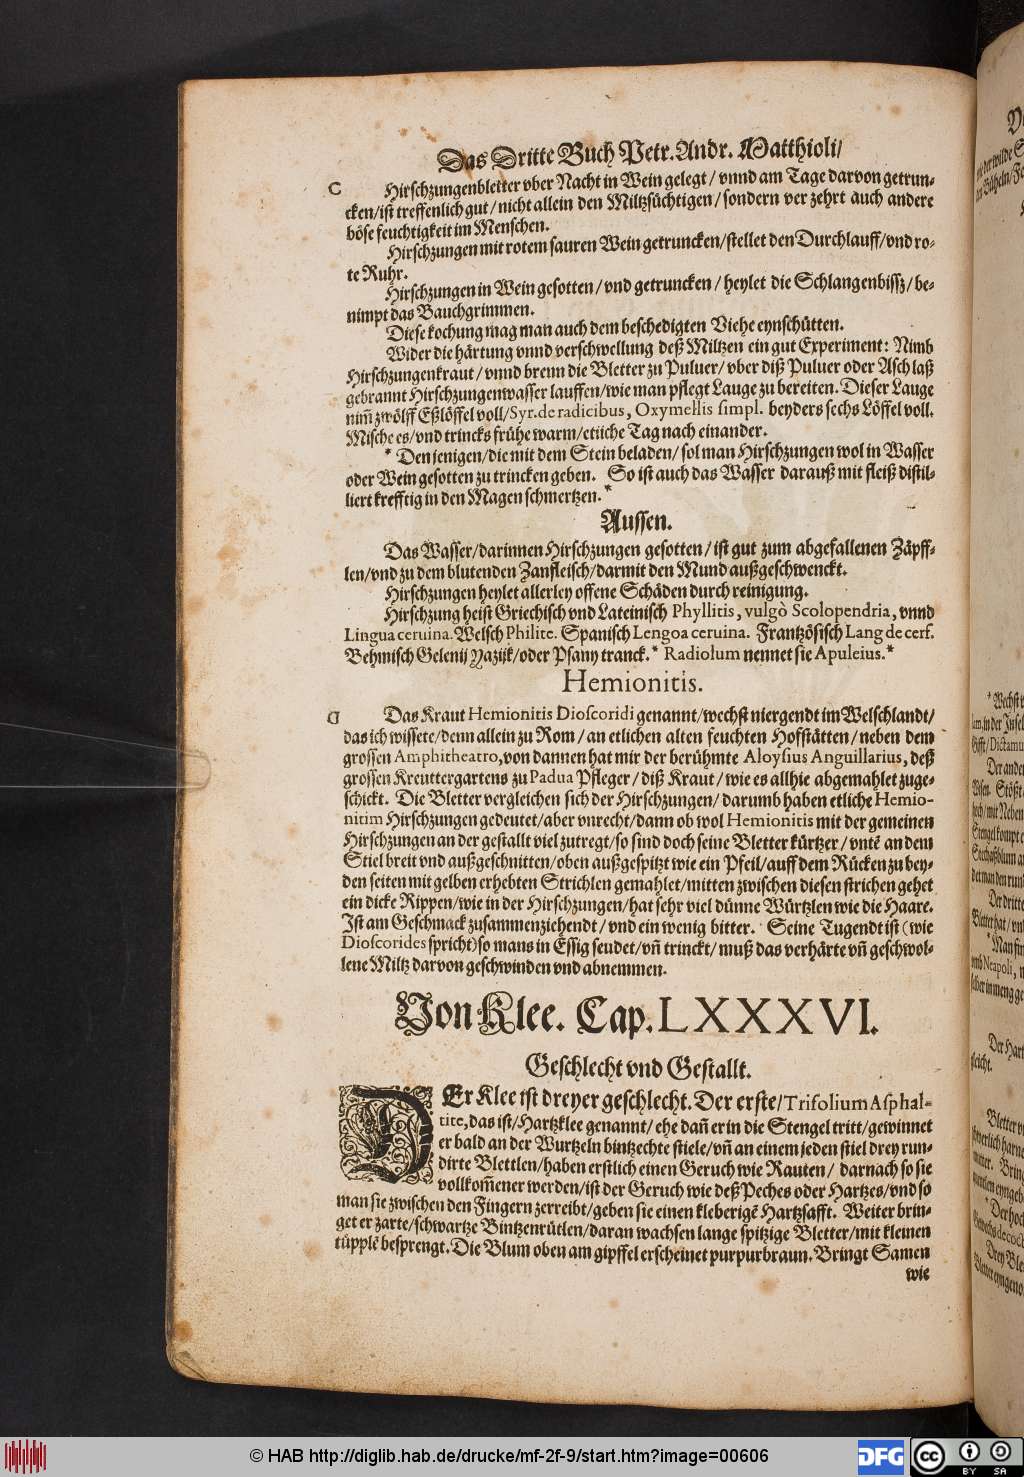 Das Dritte Buch Petr. Andr. Matthioli/
C Hirschzungenbletter vber Nacht in Wein gelegt / vnnd am Tage darvon getrun-
cken/ist treffenlich gut / nicht allein den Miltzsüchtigen / sondern ver zehrt auch andere
böse feuchtigkeit im Menschen.
Hirschzungen mit rotem sauren Wein getruncken/stellet den Durchlauff/vnd ro-
te Ruhr.
Hirschzungen in Wein gesotten / vnd getruncken / heylet die Schlangenbissz/be-
nimpt das Bauchgrimmen.
Diese kochung mag man auch dem beschedigten Viehe eynschütten.
Wider die härtung vnnd verschwellung deß Miltzen ein gut Experiment: Nimb
Hirschzungenkraut / vnnd brenn die Bletter zu Puluer/ vber diß Puluer oder Asch laß
gebrannt Hirschzungenwasser lauffen/wie man pflegt Lauge zu bereiten. Dieser Lauge
nim̃ zwölff Eßlöffel voll/Syr. de radicibus, Oxymellis simpl. beyders sechs Löffel voll.
Mische es/vnd trincks frühe warm/etliche Tag nach einander.
* Den jenigen/die mit dem Stein beladen/ sol man Hirschzungen wol in Wasser
oder Wein gesotten zu trincken geben. So ist auch das Wasser darauß mit fleiß distil-
liert krefftig in den Magen schmertzen.*
Aussen.
Das Wasser/darinnen Hirschzungen gesotten / ist gut zum abgefallenen Zäpff-
len/vnd zu dem blutenden Zanfleisch/darmit den Mund außgeschwenckt.
Hirschzungen heylet allerley offene Schäden durch reinigung.
Hirschzung heist Griechisch vnd Lateinisch Phyllitis, vulgò Scolopendria, vnnd
Lingua ceruina. Welsch Philite. Spanisch Lengoa ceruina. Frantzösisch Lang de cerf.
Behmisch Gelenij Yazijk/oder Psany tranck.* Radiolum nennet sie Apuleius.*
Hemionitis.
D Das Kraut Hemionitis Dioscoridi genannt/wechst niergendt im Welschlandt/
das ich wissete/denn allein zu Rom / an etlichen alten feuchten Hofstätten / neben dem
grossen Amphitheatro, von dannen hat mir der berühmte Aloysius Anguillarius, deß
grossen Kreuttergartens zu Padua Pfleger / diß Kraut / wie es allhie abgemahlet zuge-
schickt. Die Bletter vergleichen sich der Hirschzungen/ darumb haben etliche Hemio-
nitim Hirschzungen gedeutet/aber vnrecht/dann ob wol Hemionitis mit der gemeinen
Hirschzungen an der gestallt viel zutregt/so sind doch seine Bletter kürtzer / vntẽ an dem
Stiel breit vnd außgeschnitten/oben außgespitzt wie ein Pfeil/auff dem Rücken zu bey-
den seiten mit gelben erhebten Strichlen gemahlet/mitten zwischen diesen strichen gehet
ein dicke Rippen/wie in der Hirschzungen/hat sehr viel dünne Würtzlen wie die Haare.
Ist am Geschmack zusammenziehendt / vnd ein wenig bitter. Seine Tugendt ist (wie
Dioscorides spricht) so mans in Essig seudet/vñ trinckt/ muß das verhärte vñ geschwol-
lene Miltz darvon geschwinden vnd abnemmen.
Von Klee. Cap. LXXXVI.
Geschlecht vnd Gestallt.
DEr Klee ist dreyer geschlecht. Der erste/Trifolium Asphal-
tite, das ist/Hartzklee genannt/ ehe dañ er in die Stengel tritt/gewinnet
er bald an der Wurtzeln bintzechte stiele/vñ an einem jeden stiel drey run-
dirte Blettlen/haben erstlich einen Geruch wie Rauten / darnach so sie
vollkom̃ener werden/ist der Geruch wie deß Peches oder Hartzes/vnd so
man sie zwischen den Fingern zerreibt/geben sie einen kleberigẽ Hartzsafft. Weiter brin-
get er zarte/schwartze Bintzenrütlen/daran wachsen lange spitzige Bletter/mit kleinen
tüpplẽ besprengt. Die Blum oben am gipffel erscheinet purpurbraun. Bringt Samen
wie
© HAB http://diglib.hab.de/drucke/mf-2f-9/start.htm?image=00606
DFG
cc
BY SA